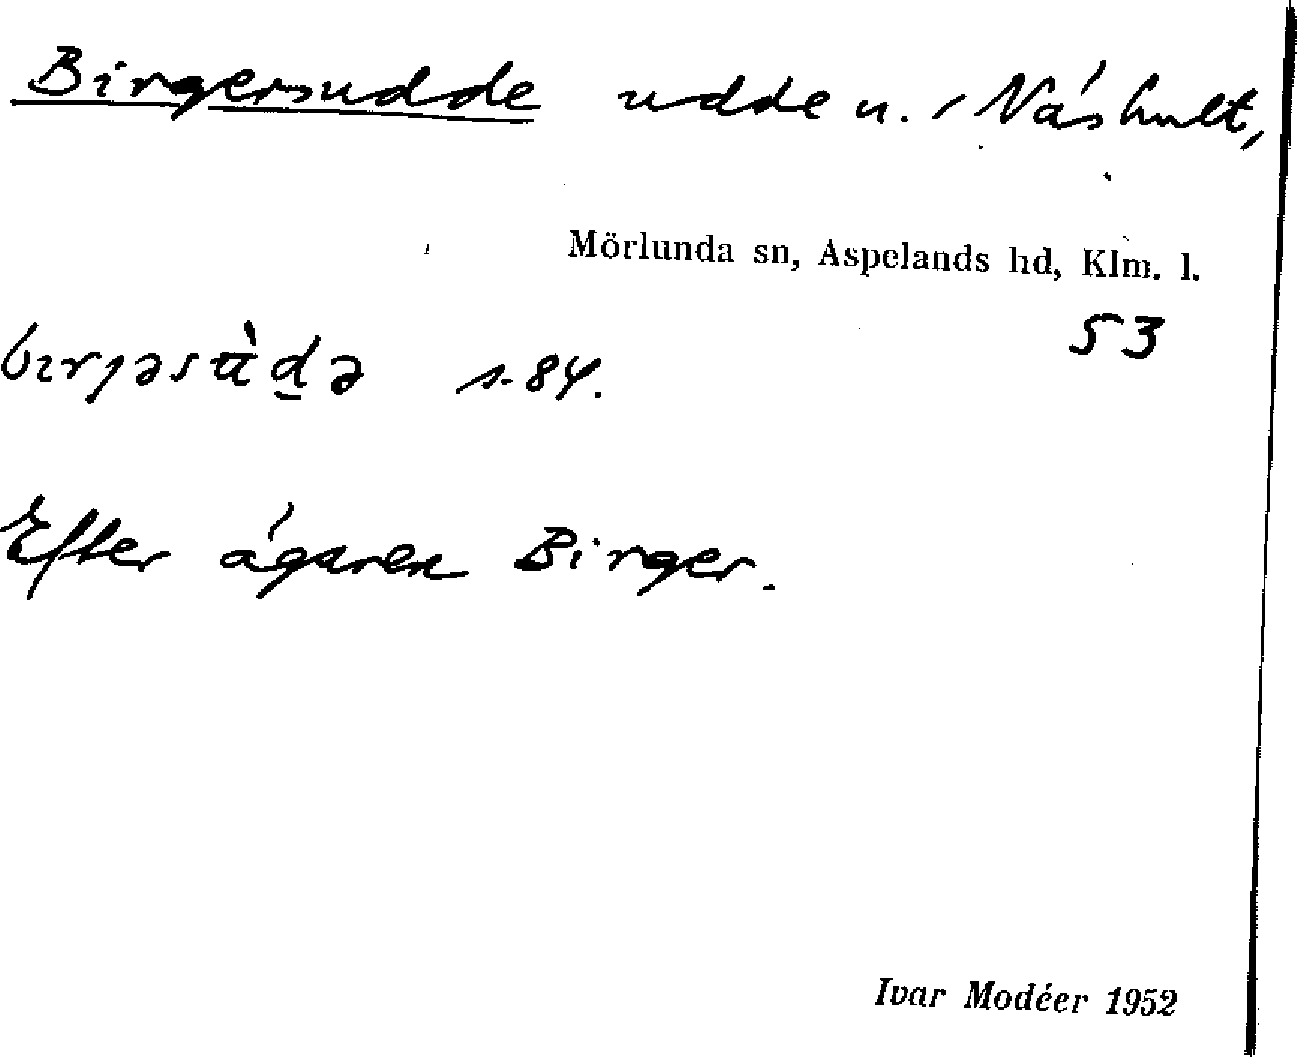 Birgersudde udde u. Näshult,
Mörlunda sn, Aspelands hd, Klm. l.
53
s. 84.
Efter ägaren Birger.
Ivar Modéer 1952